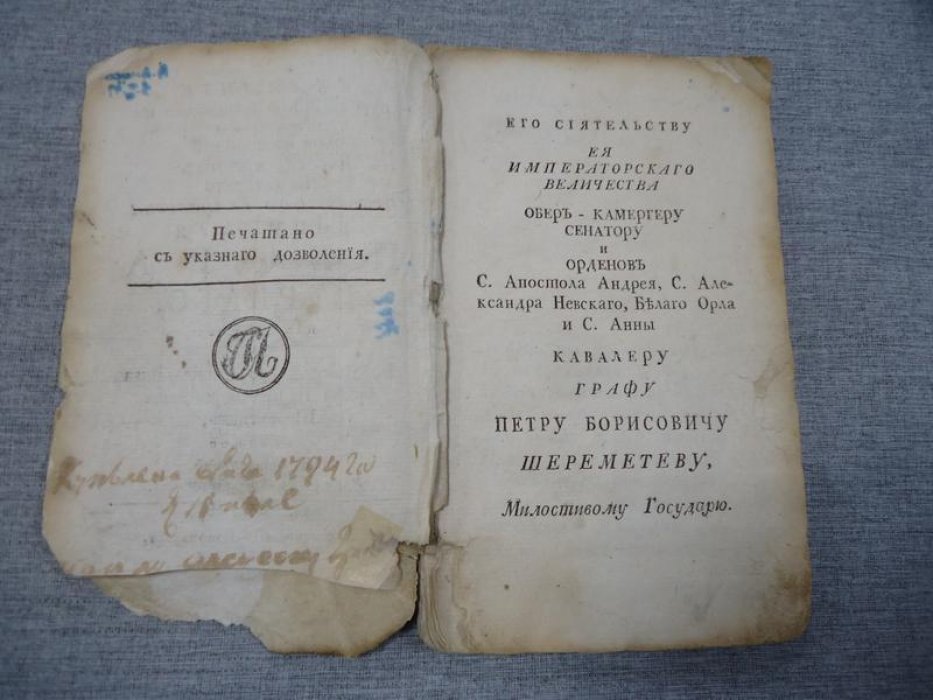 Печатано
съ указнаго дозволенїя.
1794
ЕГО СІЯТЕЛЬСТВУ
ЕЯ
ИМПЕРАТОРСКАГО
ВЕЛИЧЕСТВА
ОБЕРЪ - КАМЕРГЕРУ
СЕНАТОРУ
и
ОРДЕНОВЪ
С. Апостола Андрея, С. Але-
ксандра Невскаго, Бѣлаго Орла
и С. Анны
КАВАЛЕРУ
ГРАФУ
ПЕТРУ БОРИСОВИЧУ
ШЕРЕМЕТЕВУ,
Милостивому Государю.